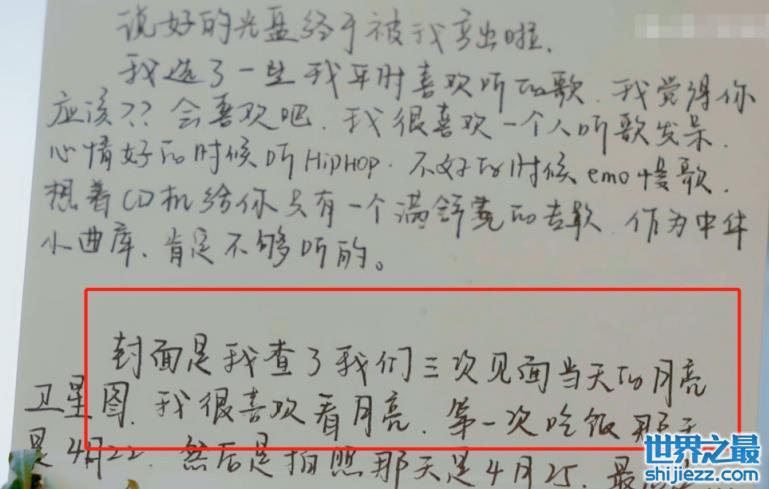 说好的光盘终于被我弄出啦.
我选了一些我平时喜欢听的歌.我觉得你
应该??会喜欢吧.我很喜欢一个人听歌发呆.
心情好的时候听HipHOP.不好的时候emo慢歌.
想着CD机给你只有一个满舒克的专 作为
小曲库.肯定不够听的。
封面是我查了我们三次见面当天的月亮
卫星图.我很喜欢看月亮.第一次吃饭那天
是4月22.然后是拍照那天是4月25.最
世界之最
shijiezz.com